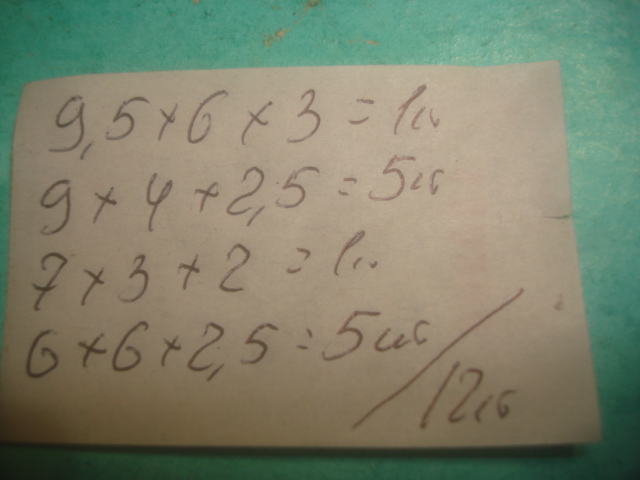 9,5×6×3=1ш
9×4×2,5=5шт
7×3×2=1ш
6×6×2,5=5шт
12шт